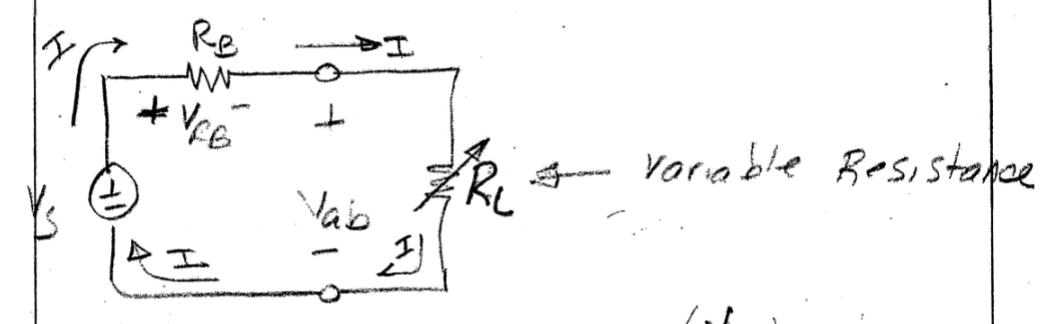 I
R_B
I
+ V_RB -
+
V_S
+
-
V_ab
-
R_L
Variable Resistance
I
I